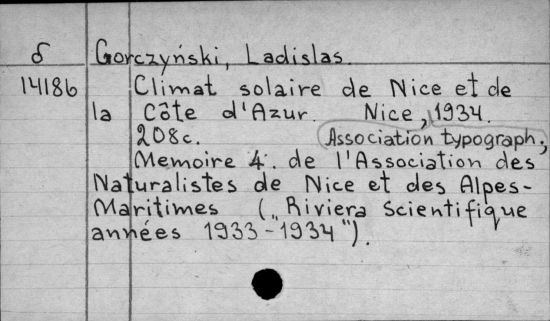 δ Gorczyński, Ladislas.
14186 Climat solaire de Nice et de
la Côte d'Azur. Nice, 1934.
208c. Association typograph.,
Memoire 4. de l'Association des
Naturalistes de Nice et des Alpes-
Maritimes („Riviera Scientifique
années 1933-1934").